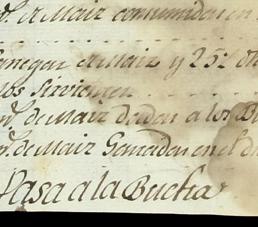 de Maiz consumidas en
fanegas de Maiz y 25: 
los Sirvientes
de Maiz dadas a los
de Maiz Ganadas en el
Pasa a la Buelta